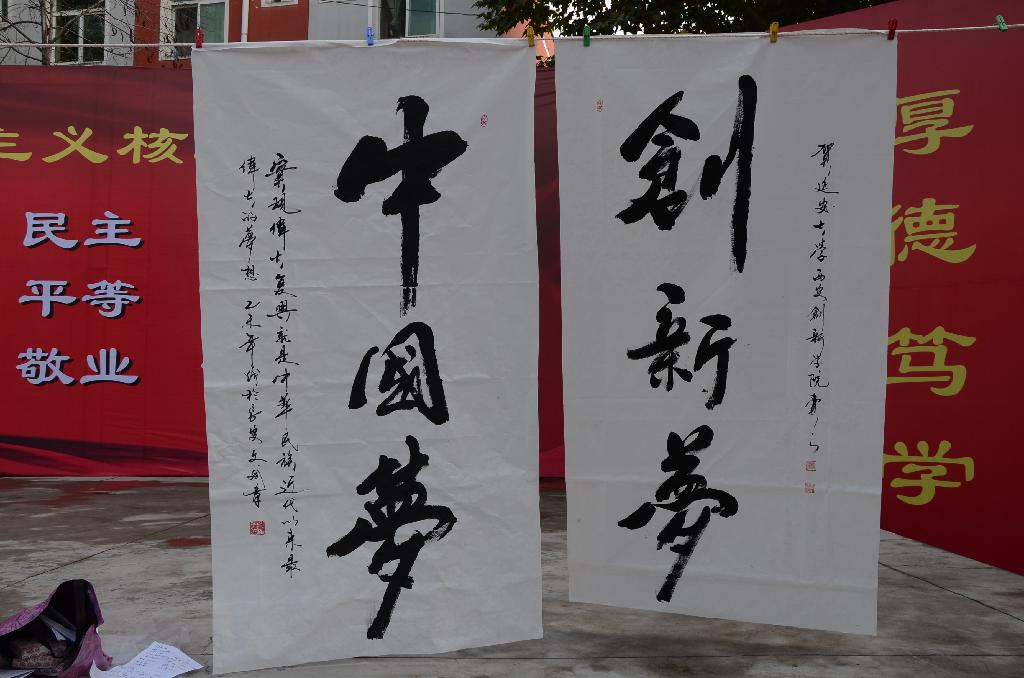 主义核
民主
平等
敬业
中國夢
實現偉大復興就是中華民族近代以來最
偉大的夢想 乙未年
創新夢
賀延安大學西安創新學院
厚德笃学